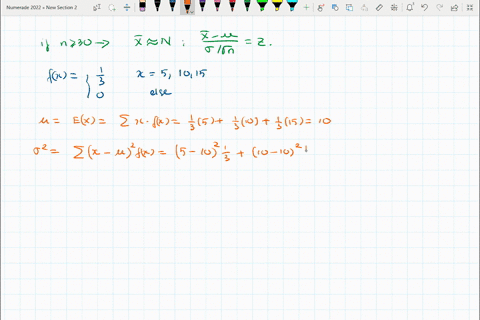 Numerade 2022 • New Section 2
if n≥30 → x̄ ≈ N ; (x̄ - μ)/(σ/√n) = Z.
f(x) = { 1/3 x = 5, 10, 15
0 else
μ = E(x) = Σ x·f(x) = 1/3 (5) + 1/3 (10) + 1/3 (15) = 10
σ² = Σ (x - μ)² f(x) = (5 - 10)² 1/3 + (10 - 10)²